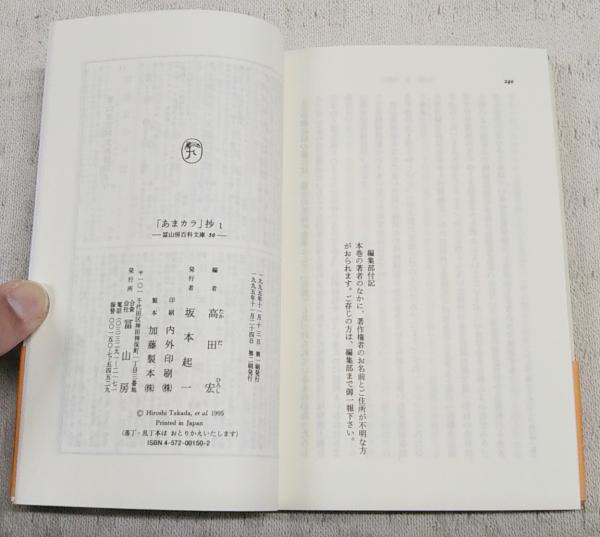 240
編集部付記
本巻の著者のなかに、著作権者のお名前とご住所が不明な方
がおられます。ご存じの方は、編集部まで御一報下さい。
「あまカラ」抄 1
—冨山房百科文庫 50—
一九九五年十一月十三日 第一刷発行
一九九五年十一月二十四日 第二刷発行
編者 高田宏
たか だ ひろし
発行者 坂本起一
印刷 内外印刷㈱
製本 加藤製本㈱
発行所 合資会社 冨山房
〒一〇一 千代田区神田神保町一丁目三番地
© Hiroshi Takada, et al 1995
Printed in Japan
(落丁・乱丁本は おとりかえいたします)
ISBN 4-572-00150-2